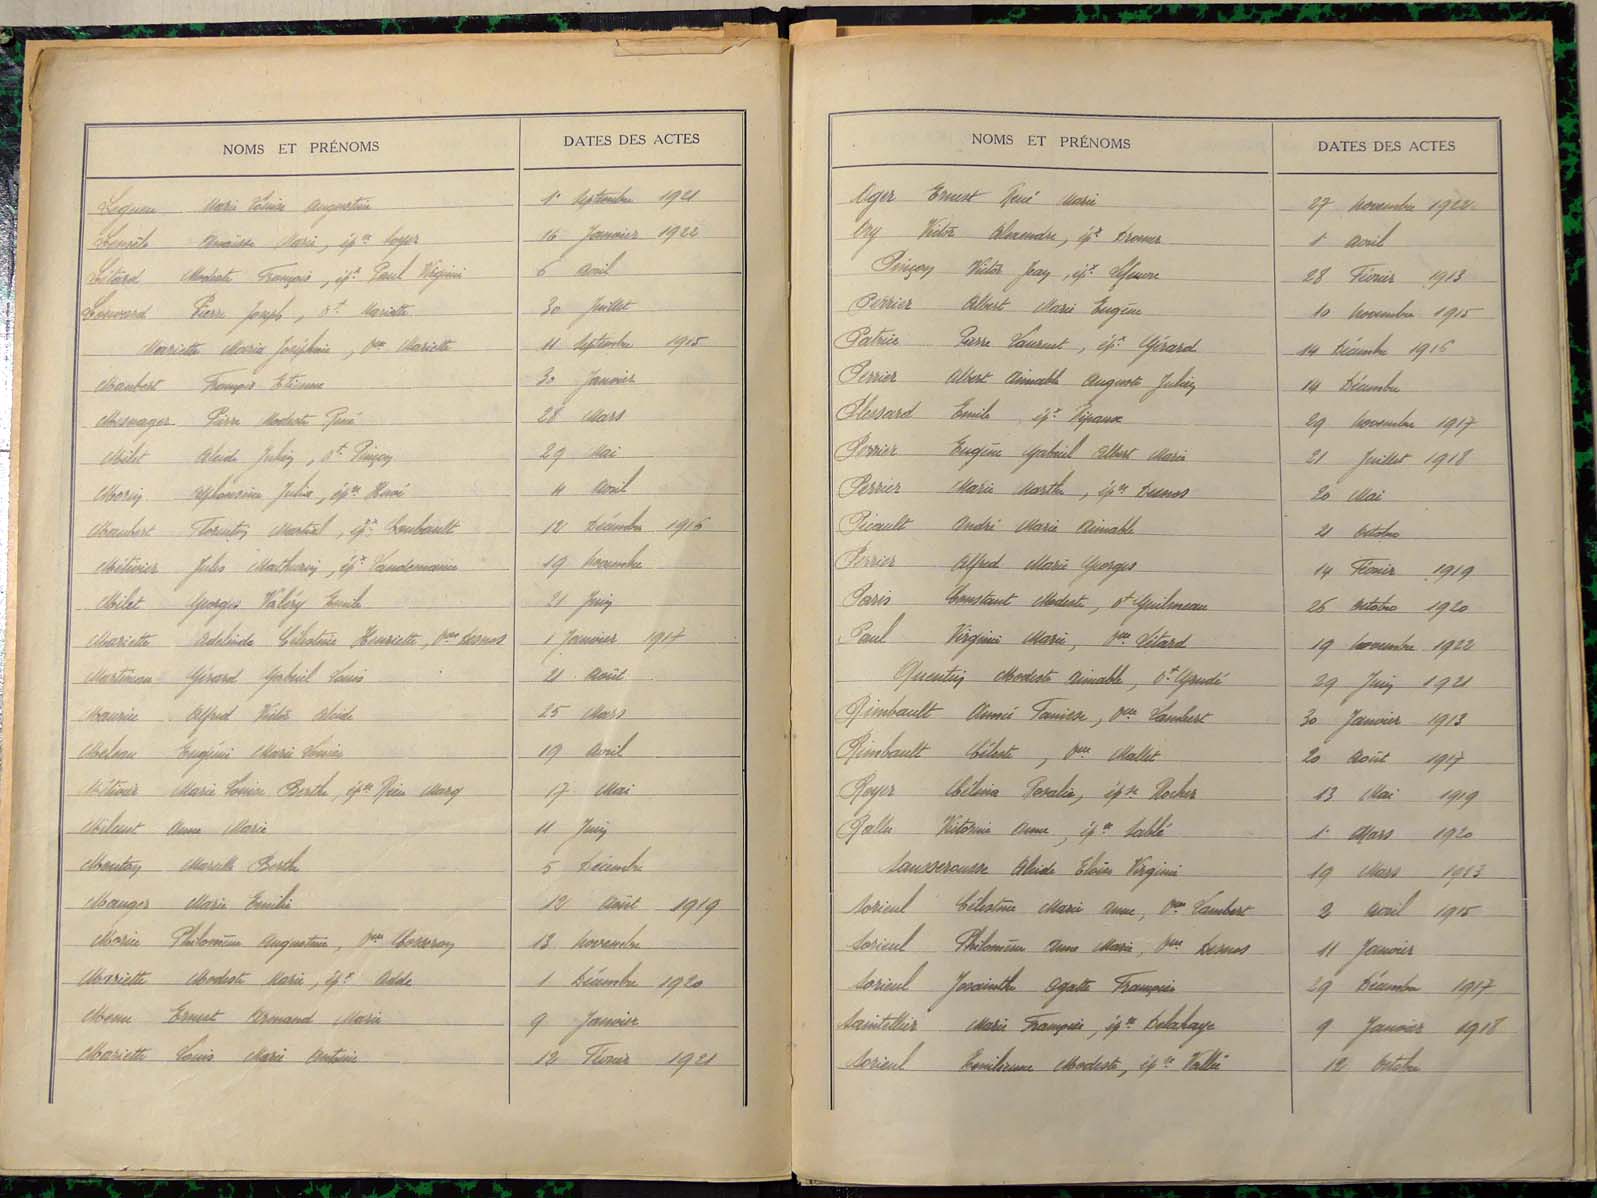 NOMS ET PRÉNOMS DATES DES ACTES
Legueu Marie Louise Augustine 1er Septembre 1921
Anaïsse Marie, épse Royer 16 Janvier 1922
Létard Modeste François, épx Paul Virginie 6 Avril
Pierre Joseph, vf Mariette 30 Juillet
Mariette Marie Joséphine, vve Mariette 11 Septembre 1915
Maubert François Etienne 30 Janvier
Mesnager Pierre Modeste René 28 Mars
Milet Alcide Julien, vf Pinçon 29 Mai
Morin Alphonsine Julie, épse Hervé 11 Avril
Maubert Florentin Martial, épx Lombault 12 Décembre 1916
Métivier Jules Mathurin, épx 19 Novembre
Milet Georges Valéry Emile 21 Juin
Mariette Adélaïde Célestine Henriette, vve Desnos 1 Janvier 1917
Martineau Gérard Gabriel Louis 21 Août
Maurice Alfred Victor Alcide 25 Mars
Eugénie Marie Louise 19 Avril
Métivier Marie Louise Berthe, épse 17 Mai
Anne Marie 11 Juin
Marcelle Berthe 5 Décembre
Mauger Marie Emilie 12 Août 1919
Morice Philomène Augustine, vve 13 Novembre
Mariette Modeste Marie, épx Adde 1 Décembre 1920
Menu Ernest Armand Marie 9 Janvier
Mariette Louis Marie Antoine 12 Février 1921
NOMS ET PRÉNOMS DATES DES ACTES
Oger Ernest René Marie 27 Novembre 1922
Ory Victor Alexandre, épx Drouer 1 Avril
Pinçon Victor Jean, épx Lefeuvre 28 Février 1913
Perrier Albert Marie Eugène 10 Novembre 1915
Patrice Pierre Laurent, épx Gérard 14 Décembre 1916
Perrier Albert Aimable Auguste Julien 14 Décembre
Plessard Emile épx 29 Novembre 1917
Perrier Eugène Gabriel Albert Marie 21 Juillet 1918
Perrier Marie Marthe, épse Desnos 20 Mai
Picault André Marie Aimable 21 Octobre
Perrier Alfred Marie Georges 14 Février 1919
Paris Constant Modeste, vf Guilmeau 26 Octobre 1920
Paul Virginie Marie, vve Létard 19 Novembre 1922
Quentin Modeste Aimable, vf Grudé 29 Juin 1921
Rimbault Aimée Fanisse, vve Lambert 30 Janvier 1913
Rimbault Céleste, vve Mallet 20 Août 1917
Royer Célina Rosalie, épse Rocher 13 Mai 1919
Rallu Victorine Anne, épse Sablé 1er Mars 1920
Sausserousse Alcide Eloïse Virginie 19 Mars 1913
Sorieul Célestine Marie Anne, vve Lambert 2 Avril 1915
Sorieul Philomène Anne Marie, vve Desnos 11 Janvier
Sorieul Jacinthe Agathe Françoise 29 Décembre 1917
Saintellier Marie Françoise, épse Delahaye 9 Janvier 1918
Sorieul Emilienne Modeste, épse Vallée 12 Octobre